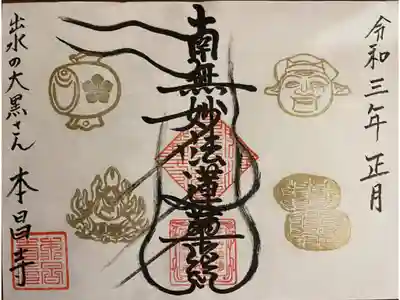 令和三年正月
南無妙法蓮華経
出水の大黒さん
本昌寺